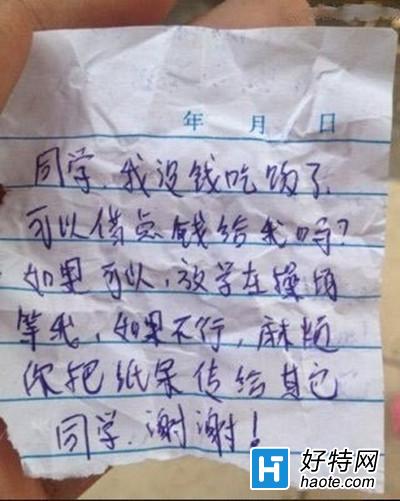 年 月 日
同学，我没钱吃饭了
可以借点钱给我吗？
如果可以，放学在操场
等我，如果不行，麻烦
你把纸条传给其它
同学，谢谢！
H 好特网
haote.com